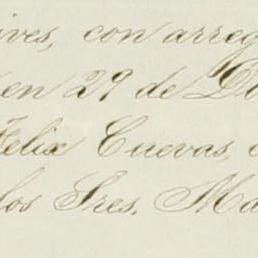 ives, con arreg
en 29 de D
Felix Cuevas,
los Sres. Ma